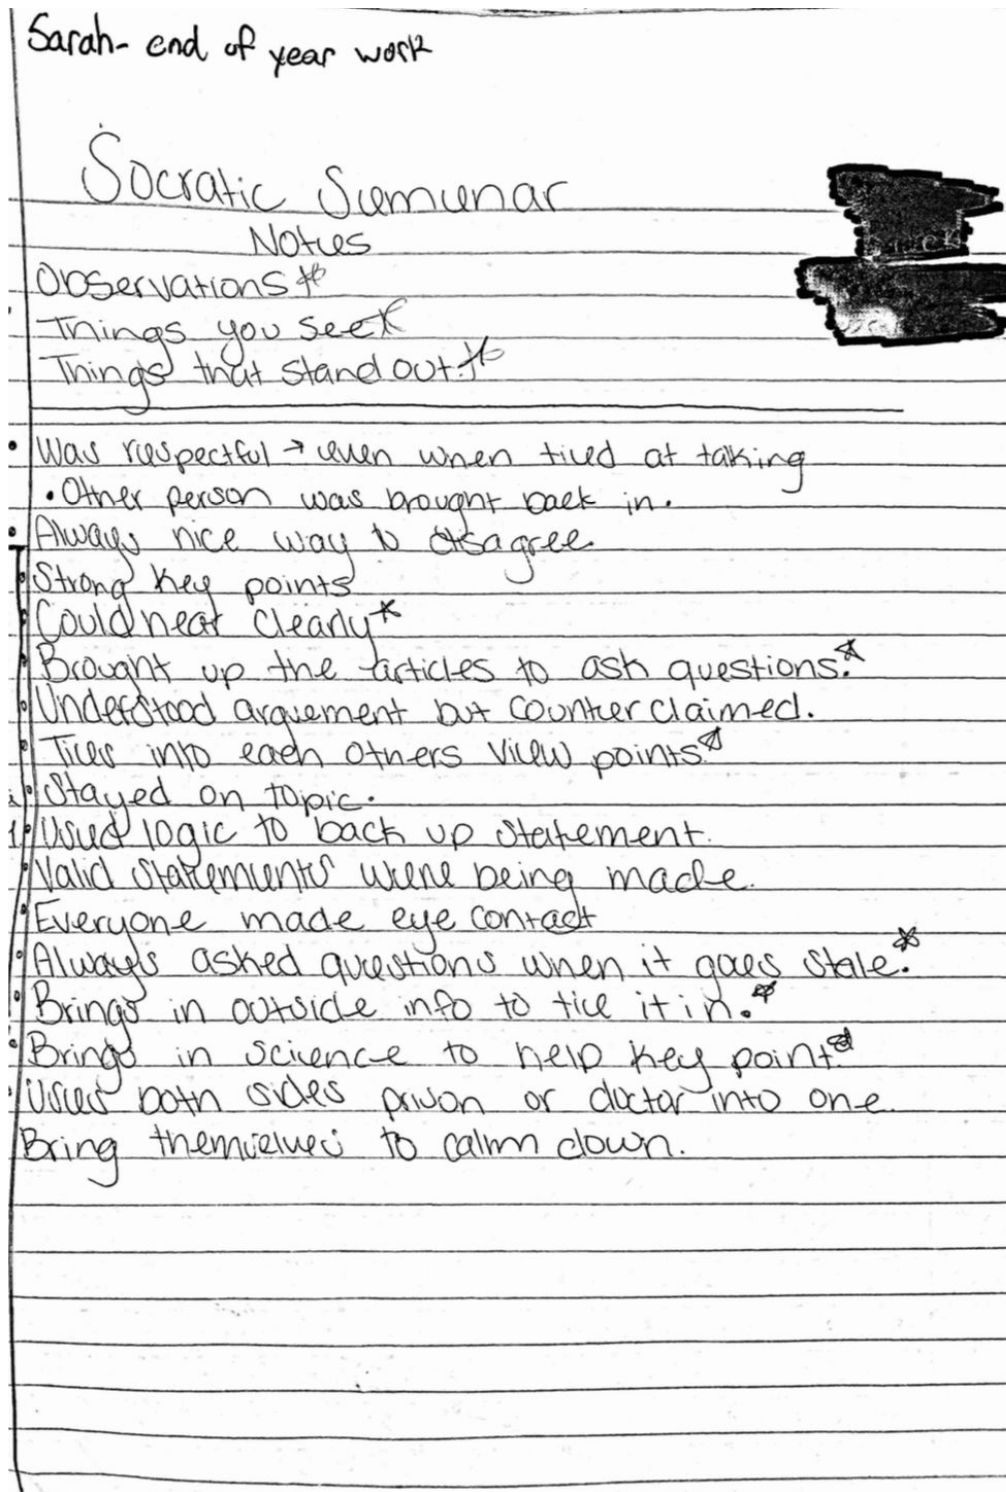 Sarah- end of year work
Socratic Sumunar
Notes
Observations *
Things you see *
Things that stand out *
• Was respectful → even when tied at taking
• Other person was brought back in.
• Always nice way to disagree.
• Strong key points
• Could hear clearly *
• Brought up the articles to ask questions. *
• Understood arguement but counter claimed.
• Ties into each others view points *
• Stayed on topic.
• Used logic to back up statement.
• Valid statements were being made.
• Everyone made eye contact
• Always asked questions when it goes stale. *
• Brings in outside info to tie it in. *
• Brings in science to help key point *
• Uses both sides prison or doctor into one.
Bring themselves to calm down.